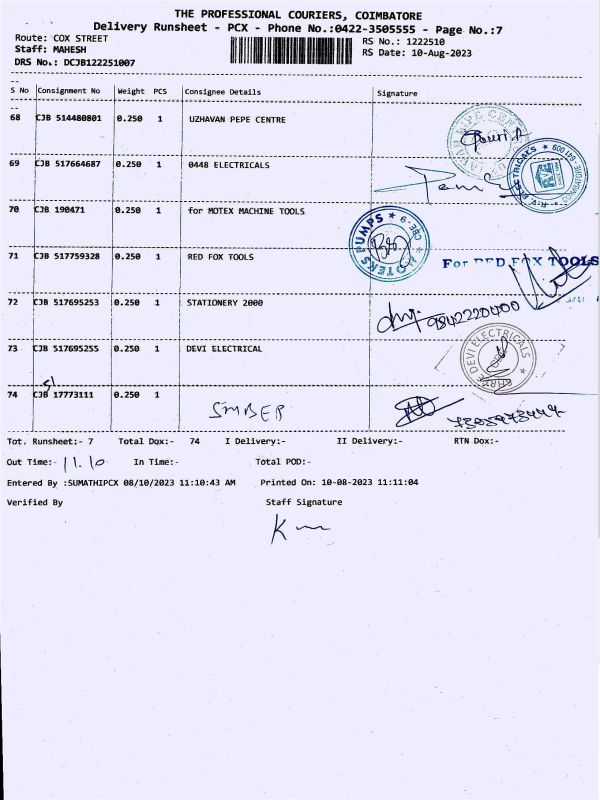 THE PROFESSIONAL COURIERS, COIMBATORE
Delivery Runsheet - PCX - Phone No.:0422-3505555 - Page No.:7
Route: COX STREET
RS No.: 1222510
Staff: MAHESH
RS Date: 10-Aug-2023
DRS No.: DCJB122251007
S No Consignment No Weight PCS Consignee Details Signature
68 CJB 514480801 0.250 1 UZHAVAN PEPE CENTRE
69 CJB 517664687 0.250 1 0448 ELECTRICALS
70 CJB 190471 0.250 1 for MOTEX MACHINE TOOLS
PUMPS ★ CBE-9 ★
71 CJB 517759328 0.250 1 RED FOX TOOLS
For RED FOX TOOLS
72 CJB 517695253 0.250 1 STATIONERY 2000
9842220400
73 CJB 517695255 0.250 1 DEVI ELECTRICAL
DEVI ELECTRICALS
74 CJB 17773111 0.250 1
51
Tot. Runsheet:- 7 Total Dox:- 74 I Delivery:- II Delivery:- RTN Dox:-
Out Time:- 11.10 In Time:- Total POD:-
Entered By :SUMATHIPCX 08/10/2023 11:10:43 AM Printed On: 10-08-2023 11:11:04
Verified By Staff Signature